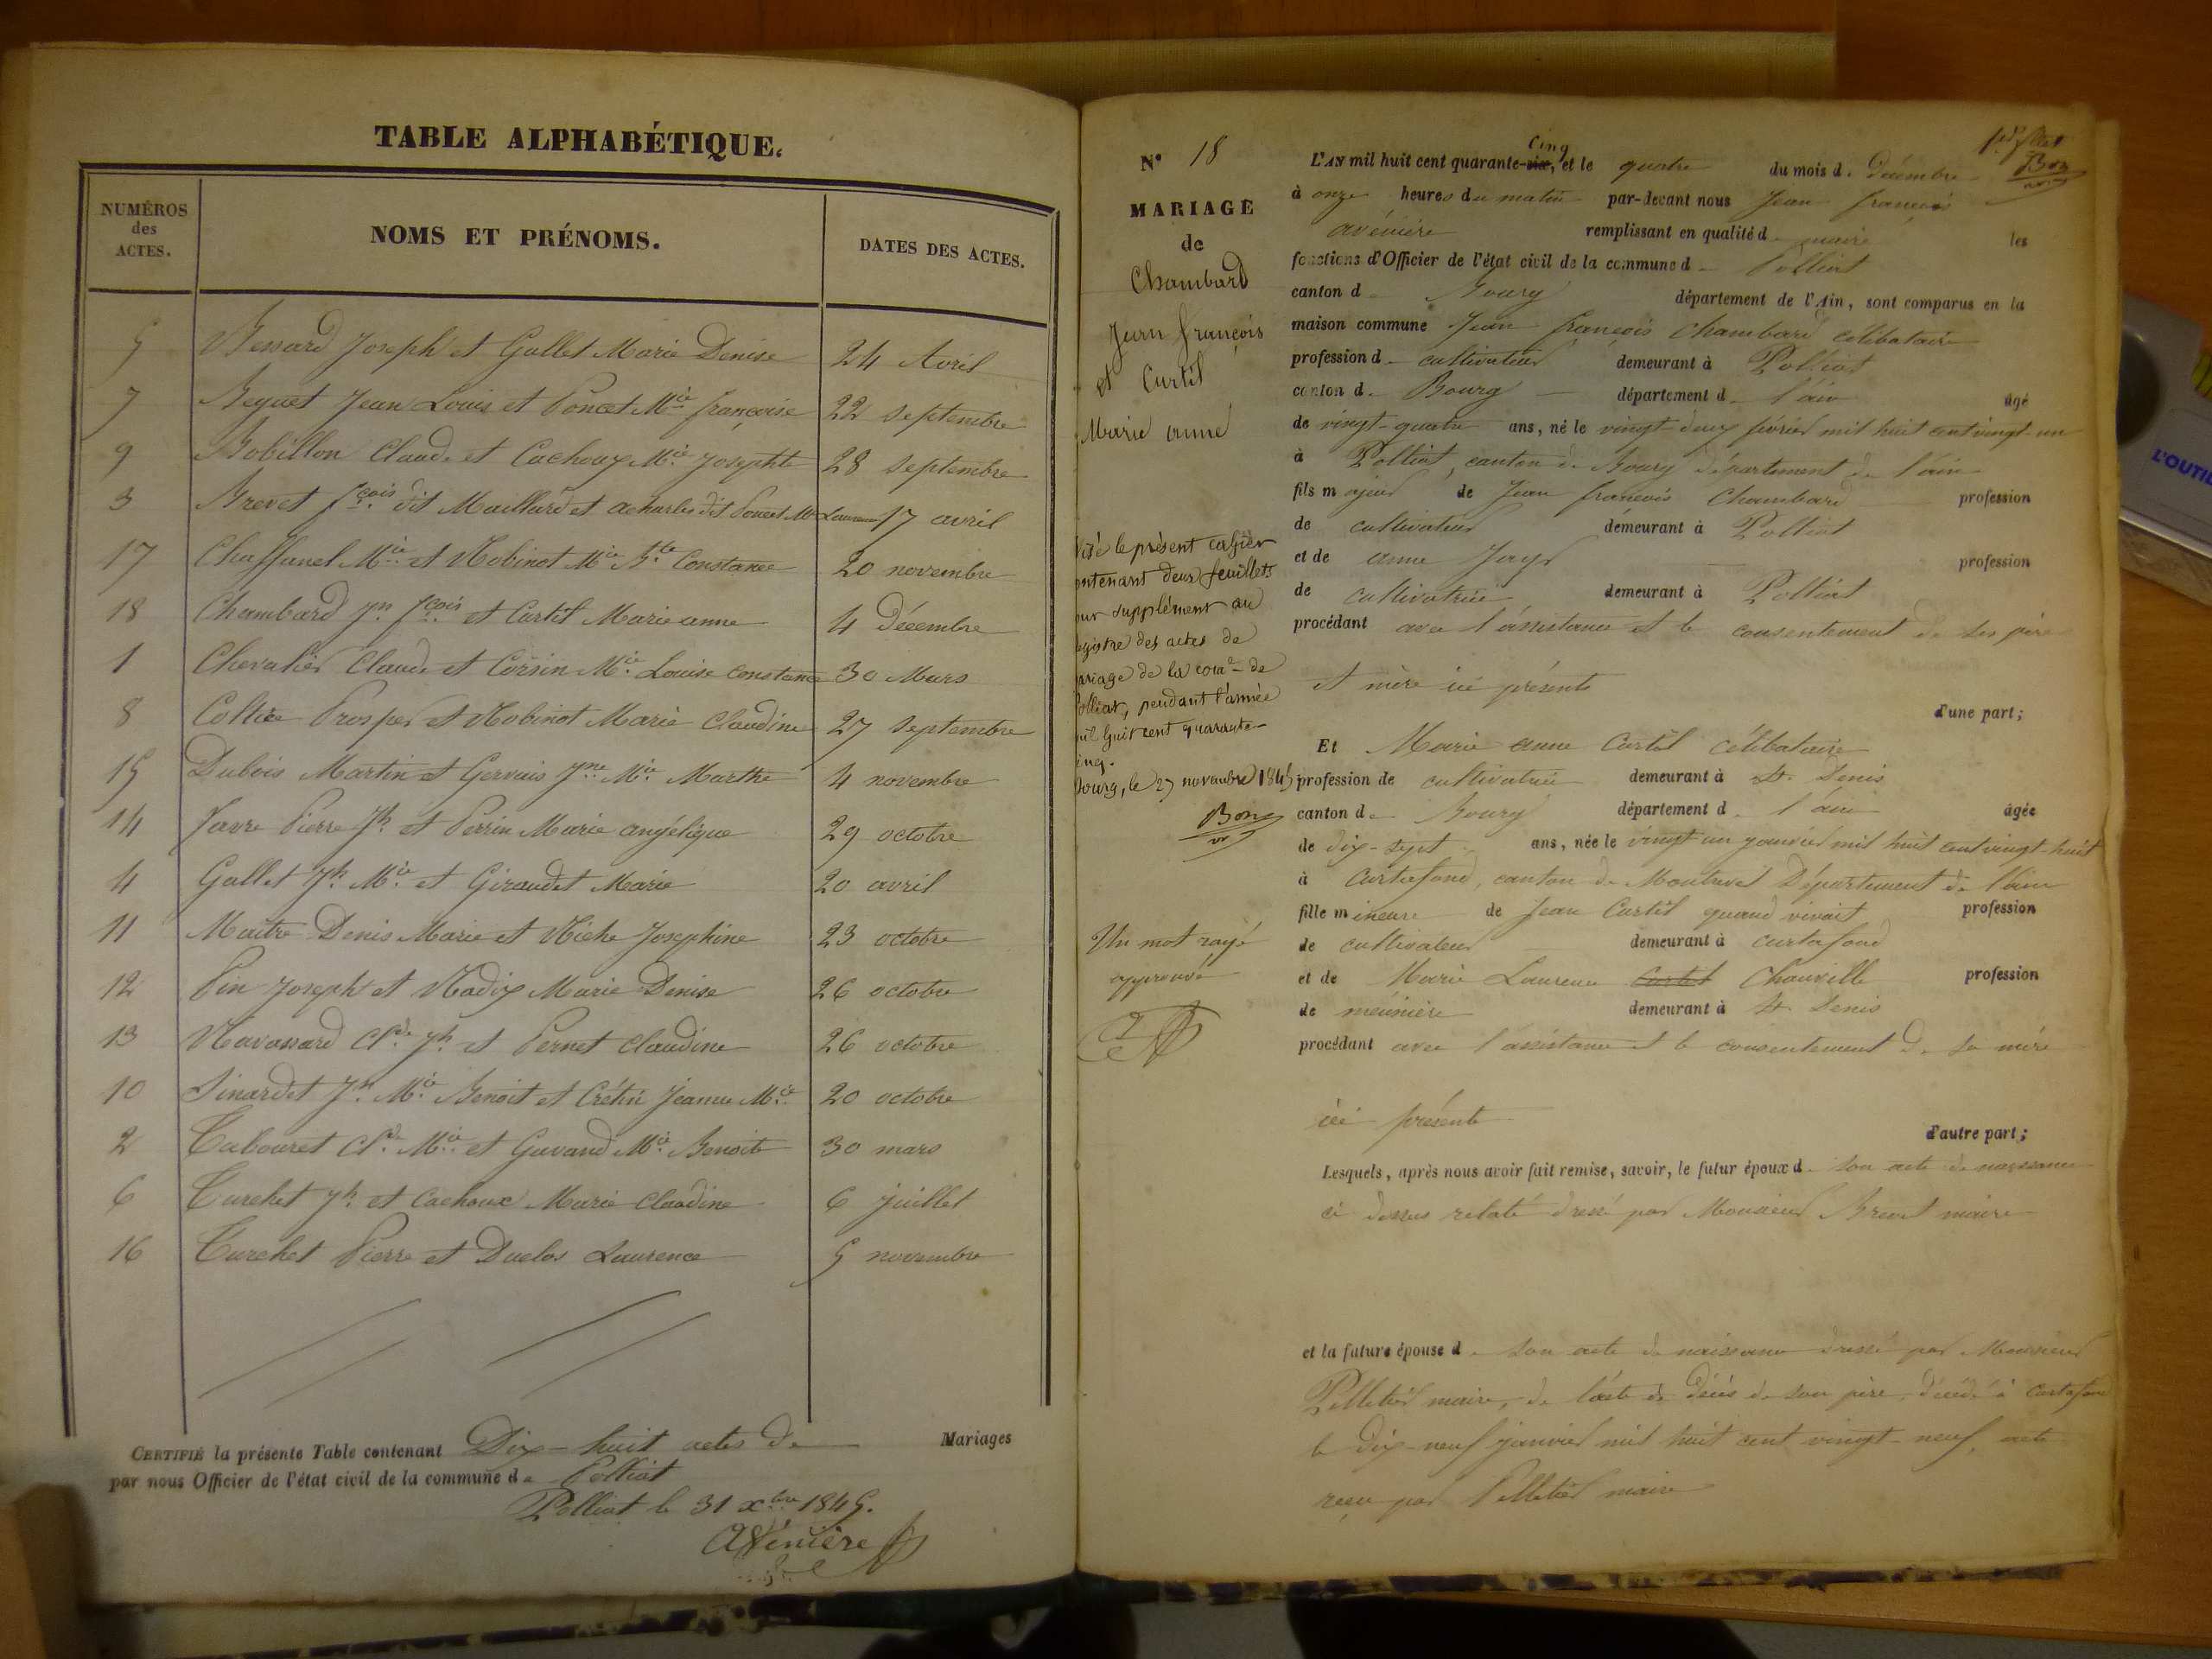 TABLE ALPHABÉTIQUE.
NUMÉROS des ACTES. NOMS ET PRÉNOMS. DATES DES ACTES.
5 Bessard Joseph et Gallet Marie Denise 24 Avril
7 Beguet Jean Louis et Poncet Mie françoise 22 septembre
9 Bobillon Claude et Cachoux Mie Josephte 28 septembre
3 Brevet fçois dit Maillard et acharles dit Poncet Mie Laurence 17 avril
17 Chaffanel Mie et Robinot Mie Bte Constance 20 novembre
18 Chambard Jn fçois et Curtil Marie anne 4 Décembre
1 Chevalier Claude et Corsin Mie Louise Constance 30 Mars
8 Prosper et Robinot Marie Claudine 27 septembre
15 Dubois Martin et Gervais Jne Mie Marthe 4 novembre
14 favre Pierre Jh et Perrin Marie angélique 29 octobre
4 Gallet Jh Mie et Giraudet Marie 20 avril
11 Maitre Denis Marie et Riche Josephine 23 octobre
12 Pin Joseph et Radix Marie Denise 26 octobre
13 Ravassard Cde Jh et Pernet Claudine 26 octobre
10 Sinardet Jh Mie Benoit et Crétin Jeanne Mie 20 octobre
2 Tabouret Cde Mie et Gavand Mie Benoite 30 mars
6 Turchet Jh et Cachoux Marie Claudine 6 juillet
16 Turchet Pierre et Duclos Laurence 5 novembre
CERTIFIÉ la présente Table contenant Dix-huit actes de Mariages
par nous Officier de l'état civil de la commune d. Polliat
Polliat le 31 xbre 1845.
Avénière
No 18
MARIAGE
de
Chambard
Jean françois
et Curtil
Marie anne
Visé le présent cahier
contenant deux feuillets
pour supplément au
registre des actes de
mariage de la come de
Polliat, pendant l'année
mil huit cent quarante-
cinq.
Bourg, le 27 novembre 1845.
Bon
Un mot rayé
approuvé
1er fllet
Bon
cinq
L'AN mil huit cent quarante-six, et le quatre du mois d. Décembre
à onze heures du matin par-devant nous Jean françois
avénière remplissant en qualité d maire les
fonctions d'Officier de l'état civil de la commune d Polliat
canton d. Bourg département de l'Ain, sont comparus en la
maison commune Jean françois Chambard célibataire
profession d cultivateur demeurant à Polliat
canton d. Bourg département d l'ain âgé
de vingt-quatre ans, né le vingt-deux février mil huit cent vingt-un
à Polliat, canton de Bourg département de l'ain
fils majeur de Jean françois Chambard profession
de cultivateur demeurant à Polliat
et de anne profession
de cultivatrice demeurant à Polliat
procédant avec l'assistance et le consentement de ses père
et mère ici présents
d'une part;
Et Marie anne Curtil célibataire
profession de cultivatrice demeurant à St. Denis
canton d. Bourg département d. l'ain âgée
de dix-sept ans, née le vingt un janvier mil huit cent vingt-huit
à Curtafond, canton de Montrevel Département de l'ain
fille mineure de Jean Curtil quand vivait profession
de cultivateur demeurant à curtafond
et de Marie Laurence Curtil Chauville profession
de meunière demeurant à St. Denis
procédant avec l'assistance et le consentement de sa mère
ici présente
d'autre part;
Lesquels, après nous avoir fait remise, savoir, le futur époux d. son acte de naissance
ci dessus relaté dressé par Monsieur Brevet maire
et la future épouse d. son acte de naissance dressé par Monsieur
Pelletier maire, de l'acte de décès de son père, décédé à Curtafond
le dix-neuf janvier mil huit cent vingt-neuf, acte
reçu par Pelletier maire
L'OUTIL